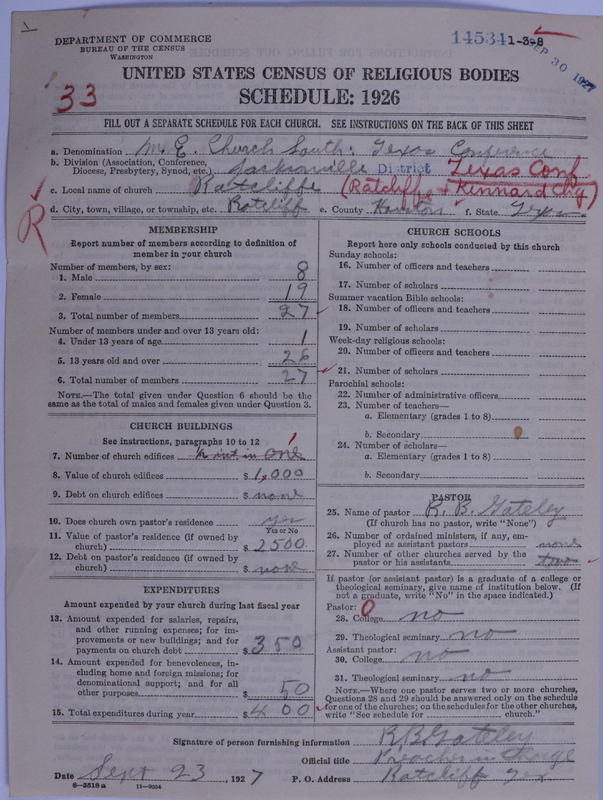 DEPARTMENT OF COMMERCE
BUREAU OF THE CENSUS
WASHINGTON
14534 1-3-8
SEP 30 1927
UNITED STATES CENSUS OF RELIGIOUS BODIES
SCHEDULE: 1926
33
FILL OUT A SEPARATE SCHEDULE FOR EACH CHURCH. SEE INSTRUCTIONS ON THE BACK OF THIS SHEET
a. Denomination M. E. Church South: Texas Conference
b. Division (Association, Conference, Diocese, Presbytery, Synod, etc.) Jacksonville District Texas Conf
c. Local name of church Ratcliffe (Ratcliff & Kinnard Chg)
d. City, town, village, or township, etc. Ratcliff e. County Houston f. State Texas
R
MEMBERSHIP
Report number of members according to definition of
member in your church
Number of members, by sex:
1. Male 8
2. Female 19
3. Total number of members 27
Number of members under and over 13 years old:
4. Under 13 years of age 1
5. 13 years old and over 26
6. Total number of members 27
NOTE.—The total given under Question 6 should be the
same as the total of males and females given under Question 3.
CHURCH BUILDINGS
See instructions, paragraphs 10 to 12
7. Number of church edifices one 1
8. Value of church edifices $ 1,000
9. Debt on church edifices $ none
10. Does church own pastor's residence yes
Yes or No
11. Value of pastor's residence (if owned by
church) $ 2500
12. Debt on pastor's residence (if owned by
church) $ none
EXPENDITURES
Amount expended by your church during last fiscal year
13. Amount expended for salaries, repairs,
and other running expenses; for im-
provements or new buildings; and for
payments on church debt $ 350
14. Amount expended for benevolences, in-
cluding home and foreign missions; for
denominational support; and for all
other purposes $ 50
15. Total expenditures during year $ 400
CHURCH SCHOOLS
Report here only schools conducted by this church
Sunday schools:
16. Number of officers and teachers
17. Number of scholars
Summer vacation Bible schools:
18. Number of officers and teachers
19. Number of scholars
Week-day religious schools:
20. Number of officers and teachers
21. Number of scholars
Parochial schools:
22. Number of administrative officers
23. Number of teachers—
a. Elementary (grades 1 to 8)
b. Secondary
24. Number of scholars—
a. Elementary (grades 1 to 8)
b. Secondary
PASTOR
25. Name of pastor R. B. Gateley
(If church has no pastor, write "None")
26. Number of ordained ministers, if any, em-
ployed as assistant pastors none
27. Number of other churches served by the
pastor or his assistants two
If pastor (or assistant pastor) is a graduate of a college or
theological seminary, give name of institution below. (If
not a graduate, write "No" in the space indicated.)
Pastor: 0
28. College no
29. Theological seminary no
Assistant pastor:
30. College no
31. Theological seminary no
NOTE.—Where one pastor serves two or more churches,
Questions 28 and 29 should be answered only on the schedule
for one of the churches; on the schedules for the other churches,
write "See schedule for church."
Signature of person furnishing information R. B. Gateley
Official title Preacher in Charge
Date Sept 23, 1927 P. O. Address Ratcliff Tex
8-5518a 11-9034